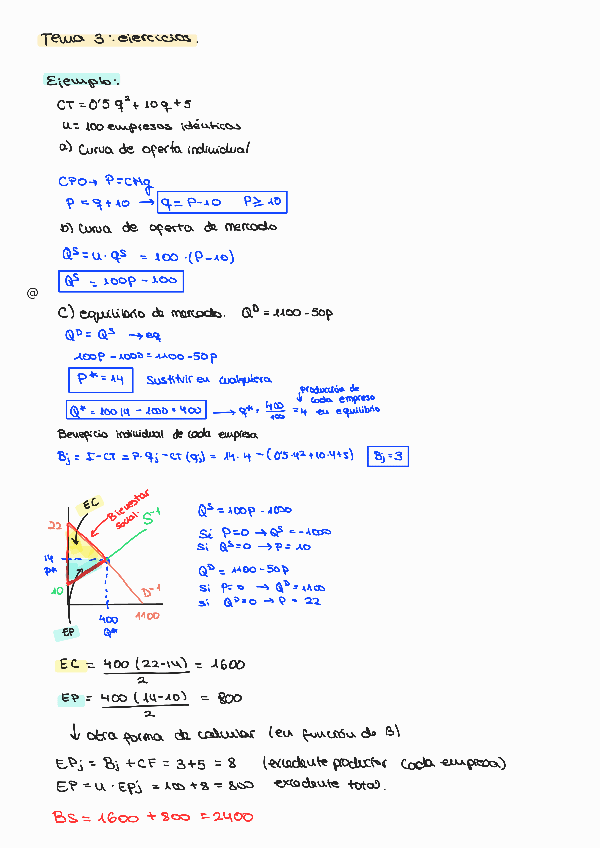 Tema 3: ejercicios.
Ejemplo:
CT = 0'5 q² + 10q + 5
n = 100 empresas idénticas
a) Curva de oferta individual
CPO → P = CMg
P = q + 10 → q = P - 10 P ≥ 10
b) Curva de oferta de mercado
Qˢ = n · qˢ = 100 · (P - 10)
Qˢ = 100P - 100
@
C) equilibrio de mercado. Qᴰ = 1100 - 50P
Qᴰ = Qˢ → eq
100P - 1000 = 1100 - 50P
P* = 14 sustituir en cualquiera
Q* = 100·14 - 1000 = 400 → q* = 400/100 = 4 en equilibrio
producción de cada empresa
Beneficio individual de cada empresa
Bj = I - CT = P · qj - CT (qj) = 14 · 4 - (0'5·4² + 10·4 + 5) Bj = 3
EC
Bienestar social.
S⁻¹
22
14
P*
10
D⁻¹
400
Q*
1100
EP
Qˢ = 100P - 1000
Si P=0 → Qˢ = -1000
Si Qˢ=0 → P = 10
Qᴰ = 1100 - 50P
Si P=0 → Qᴰ = 1100
si Qᴰ=0 → P = 22
EC = 400 (22-14) / 2 = 1600
EP = 400 (14-10) / 2 = 800
↓ otra forma de calcular (en función de B)
EPj = Bj + CF = 3 + 5 = 8 (excedente productor cada empresa)
EP = n · EPj = 100 + 8 = 800 excedente total.
BS = 1600 + 800 = 2400